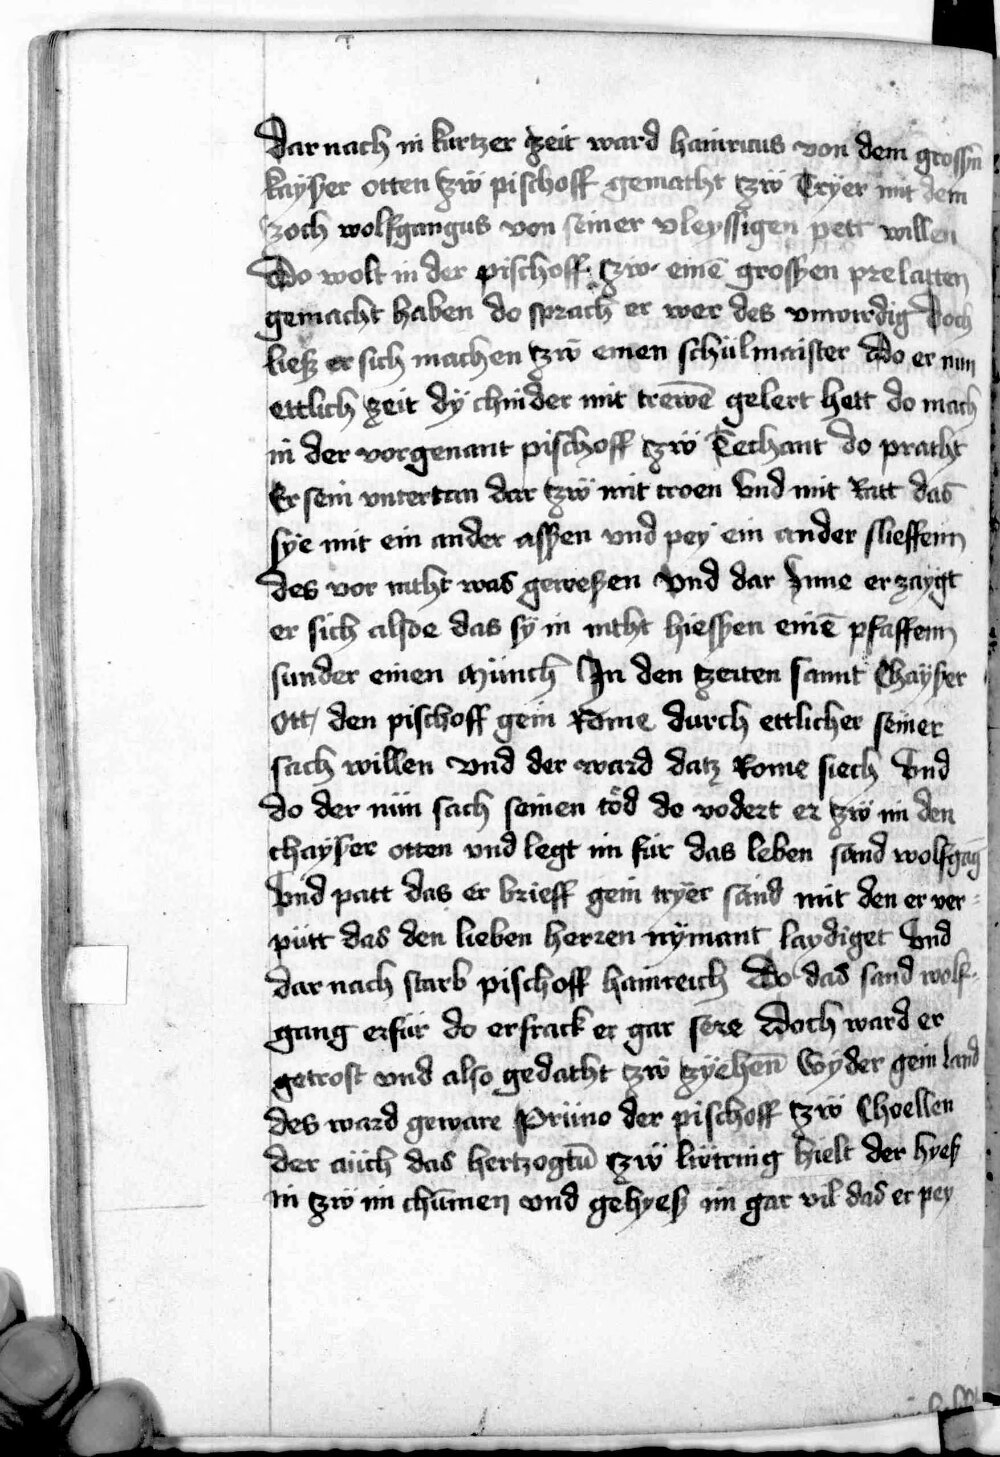 Dar nach in kurtzer zeit ward hainricus von dem grossn̄
kayser otten tzw̄ pischoff gemacht tzw̄ Tryer mit dem
zoch wolfgangus von seiner vleyssigen pett willen
Do wolt in der pischoff tzw einē grossen prelatten
gemacht haben do sprach er wer des vnwirdig Doch
liesz er sich machen tzw̄ einen schülmaister Do er nun
ettlich zeit dÿ chinder mit trewē gelert hett do mach
in der vorgenant pischoff tzẅ Techant do pracht
Er sein vntertan dar tzẅ mit troen Vnd mit Ratt das
sye mit ein ander assen vnd pey ein ander slieffenn
des vor nicht was gewesen Vnd dar Jnne erzaygt
er sich alsoe das sÿ in nicht hiessen einē pfaffenn
sunder einen Münch Jn den tzeiten sannt Chayser
Ott den pischoff gein Rome durch ettlicher seiner
sach willen Vnd der ward datz Rome siech Vnd
do der nün sach seinen tod do vodert er tzẅ im den
chayser otten vnd legt im für das leben sand wolfgāg
Vnd patt das er brieff gein tryer sand mit den er ver-
pütt das den lieben herren nymant laydiget Vnd
dar nach starb pischoff hainreich Do das sand wolf-
gang erfür do erfrack er gar sere Doch ward er
getrost vnd also gedacht tzẅ tzÿehen̄ Wyder gein Land
des ward geware Prüno der pischoff tzẅ Choellen
der aüch das hertzogtū tzẅ lütring hielt der hyes
in tzẅ im chūmen vnd gehyesz im gar vil das er pey